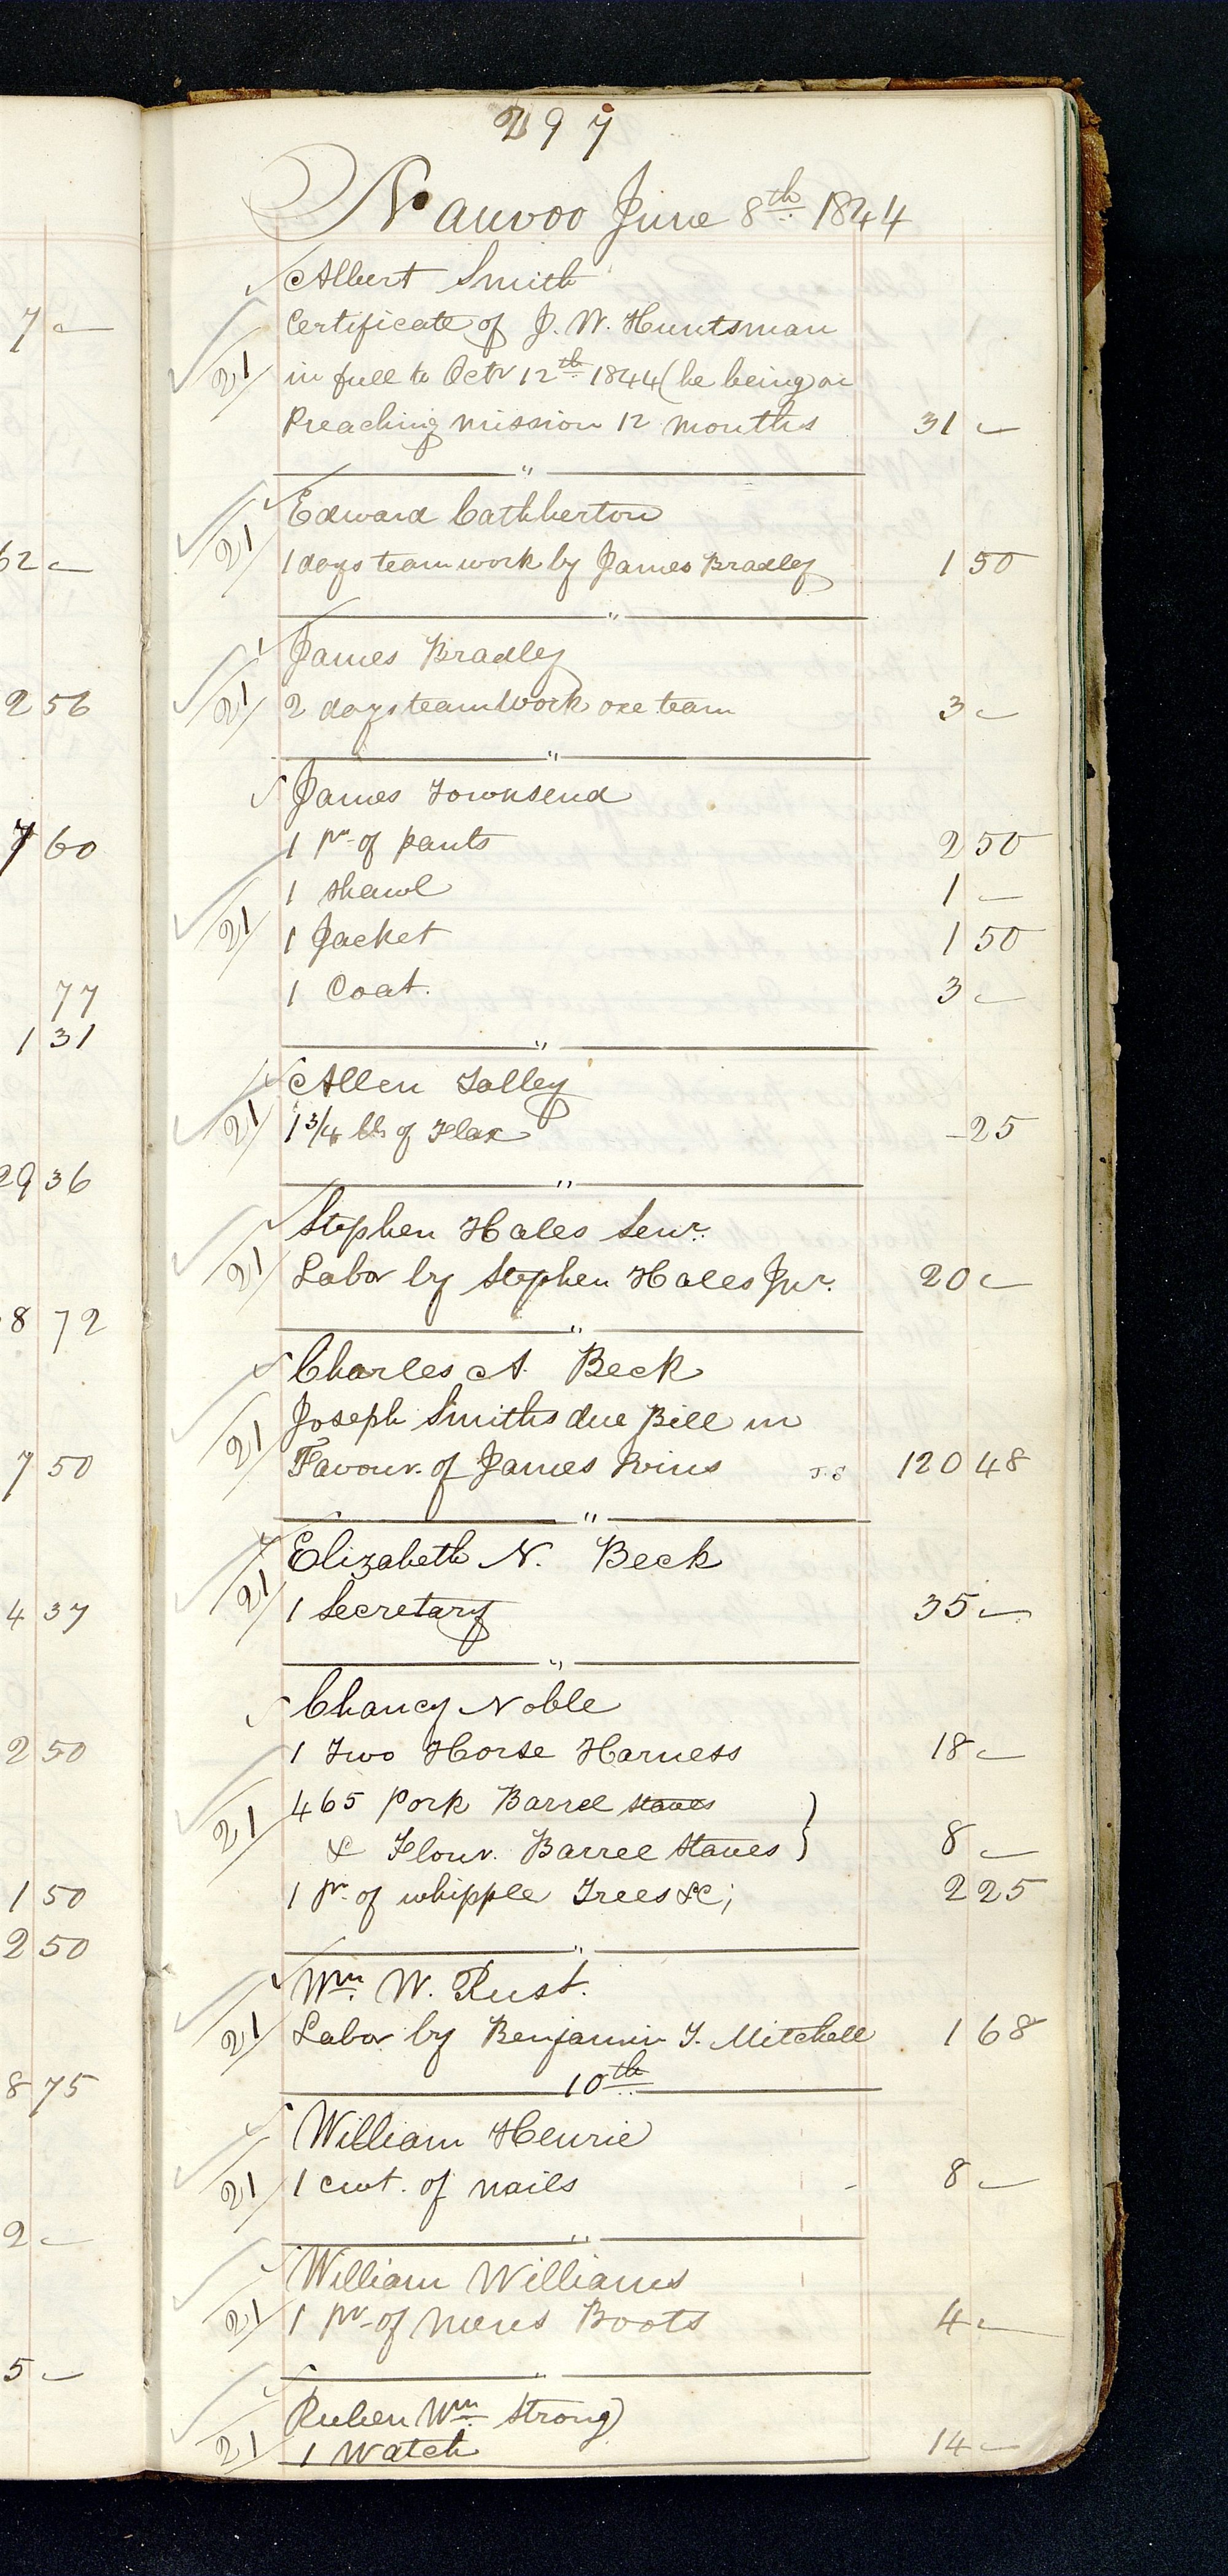 297
Nauvoo June 8th 1844
Albert Smith
Certificate of J. W. Huntsman
21 in full to Octr 12th 1844 (he being on
Preaching mission 12 months 31 —
"
Edward Cathherton
21 1 days team work by James Bradley 1 50
"
James Bradley
21 2 days team work one team 3 —
"
James Townsend
1 pr of pants 2 50
1 shawl 1 —
21 1 Jacket 1 50
1 Coat. 3 —
"
Allen Talley
21 1 3/4 lb of Flax - 25
"
Stephen Hales Senr.
21 Labor by Stephen Hales Jnr. 20 —
"
Charles A. Beck
Joseph Smiths due Bill in
21 Favour. of James Ivins J. S 120 48
"
Elizabeth N. Beck
21 1 Secretary 35 —
"
Chancy Noble
1 Two Horse Harness 18 —
21 465 Pork Barrel staves
& Flour. Barrel Staves } 8 —
1 pr. of whipple Trees &c; 2 25
"
Wm. W. Rust.
21 Labor by Benjamin T. Mitchell 1 68
10th
William Henrie
21 1 cwt. of nails - 8 —
"
William Williams
21 1 pr of mens Boots 4 —
"
Ruben Wm Strong
21 1 Watch 14 —
7 —
62 —
2 56
7 60
77
1 31
29 36
8 72
7 50
4 37
2 50
1 50
2 50
8 75
2 —
5 —